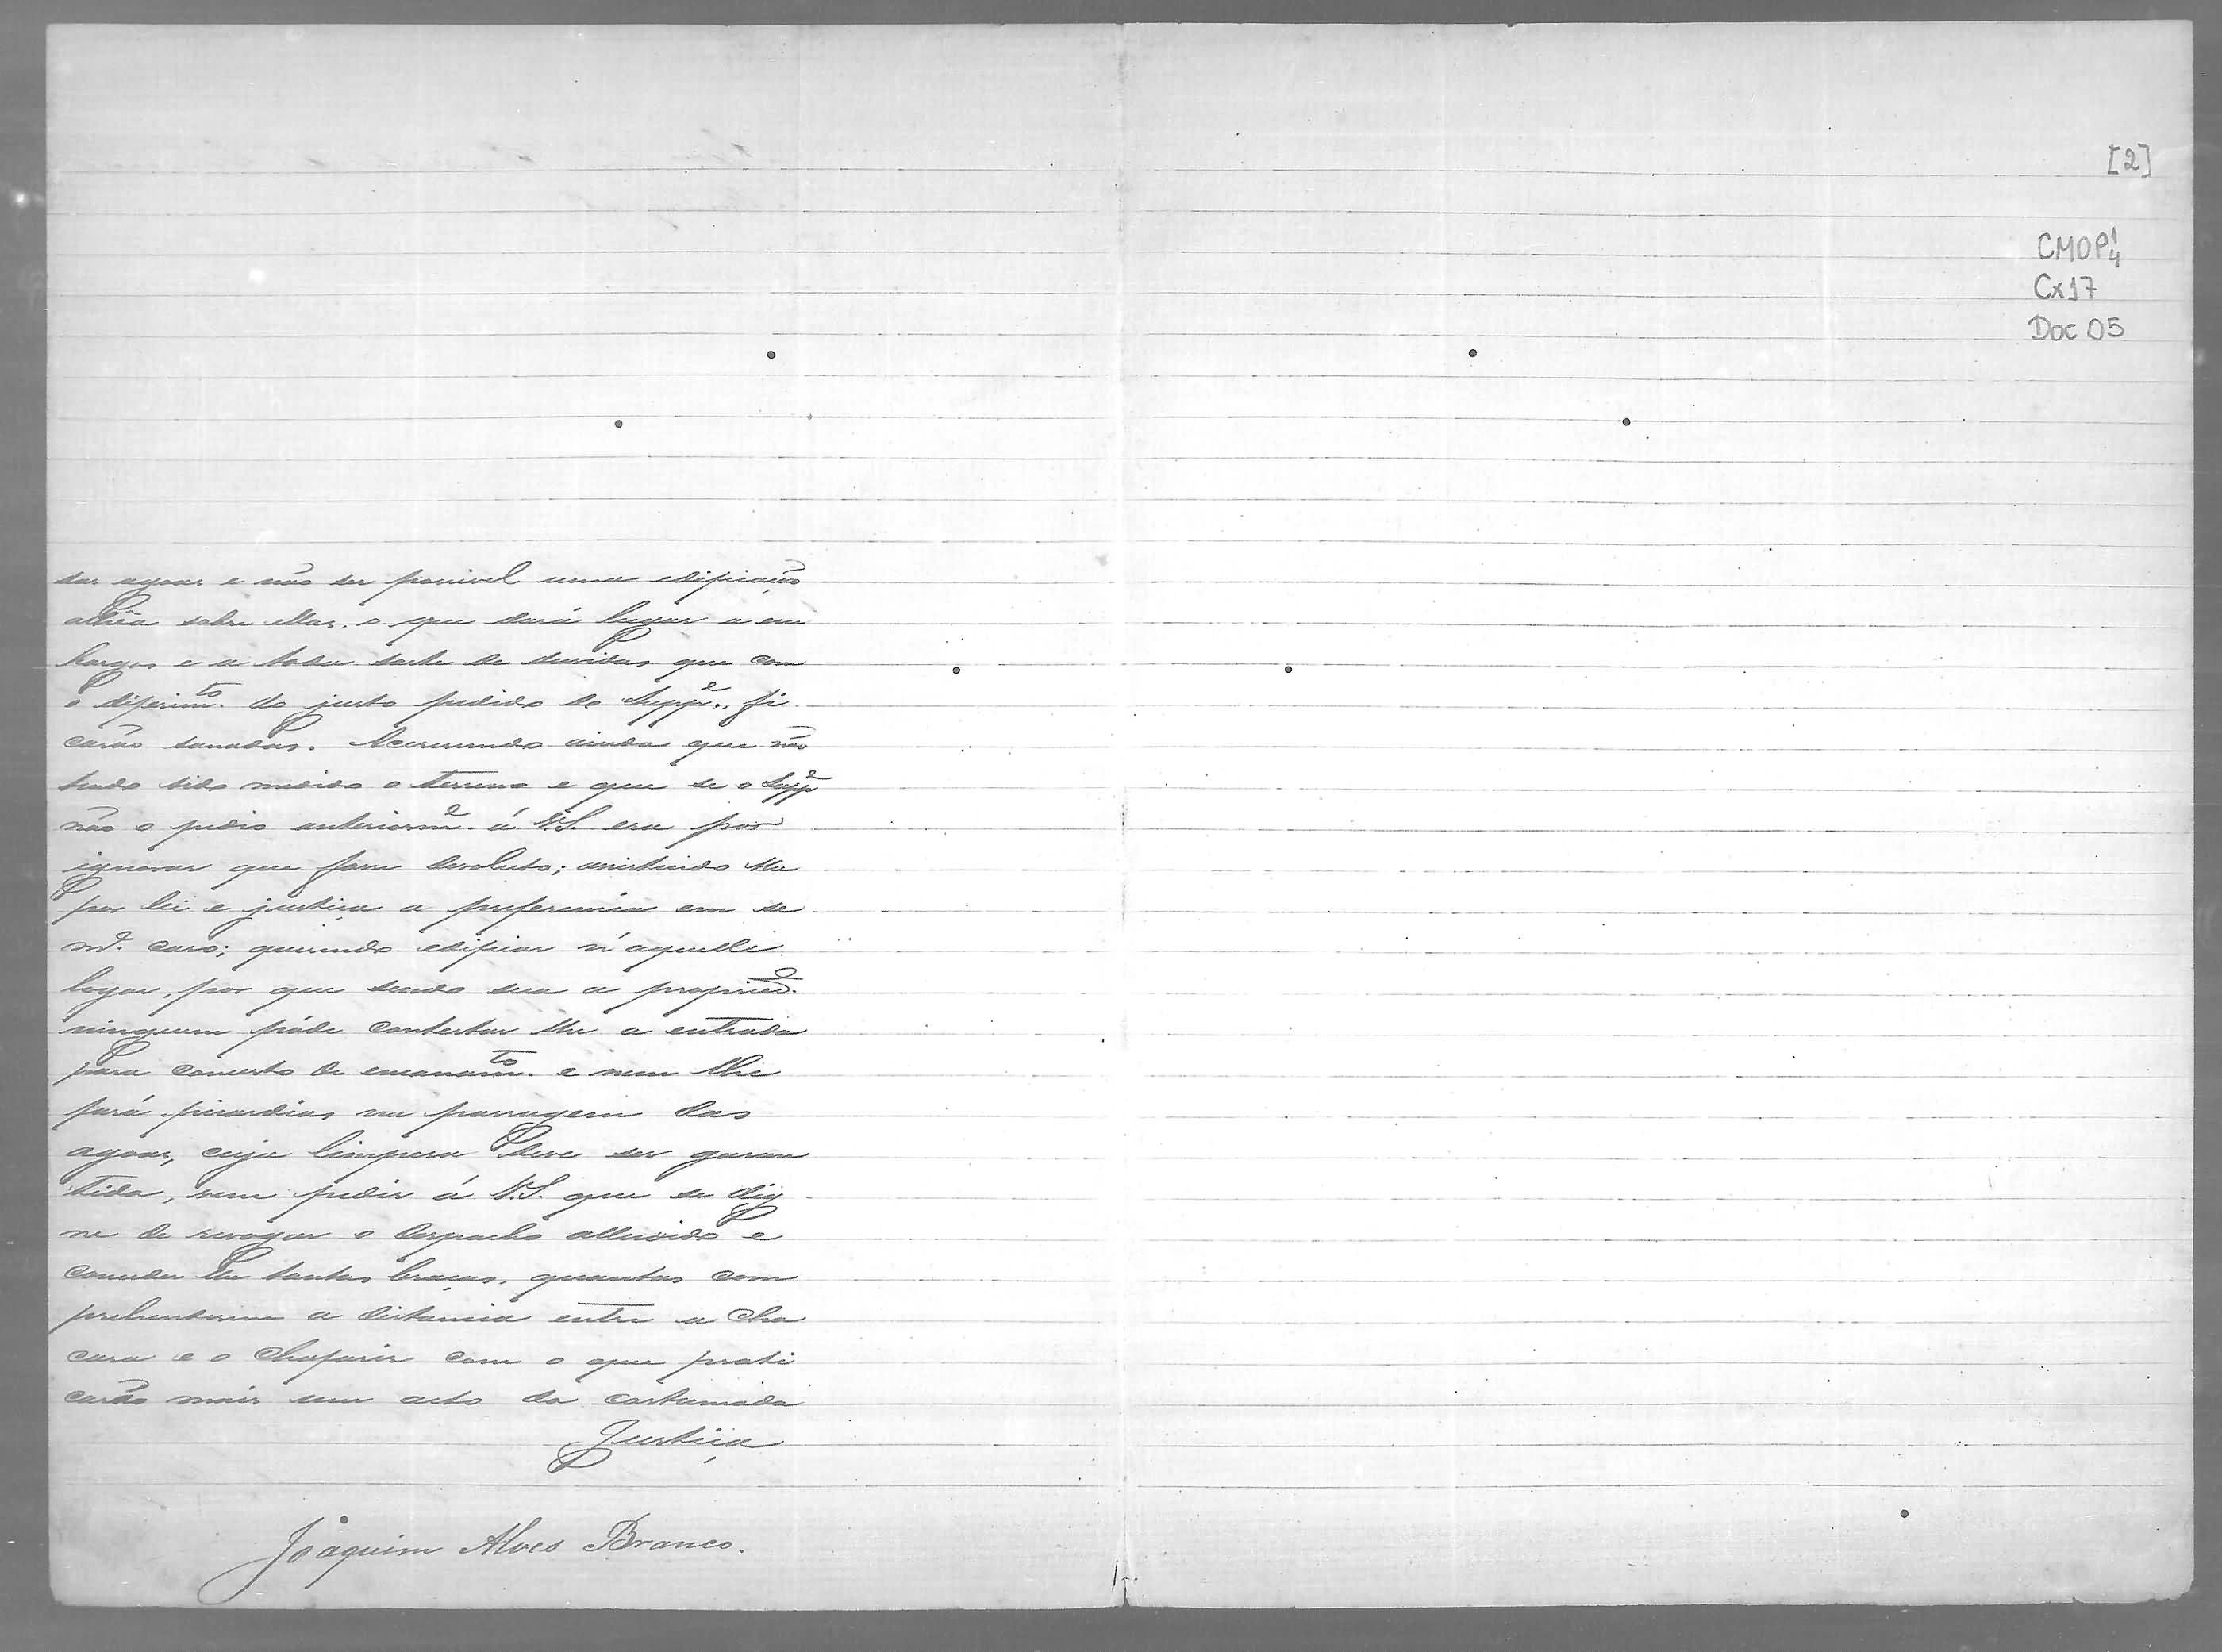 das agoas e não ser possivel uma edificação
alhêa sobre ellas, o que dará lugar a em
bargos e a toda sorte de duvidas que com
o diferim.to do justo pedido do Supp.e, fi
carão sanadas. Accrescendo ainda que não
tendo sido medido o terreno e que se o Supp.e
não o pedio anteriorm.e á V.S. era por
ignorar que fosse devoluto; assistindo lhe
por lei e justiça a preferencia em se
m.e caso; querendo edificar n'aquelle
logar, por que sendo sua a propried.e
ninguem póde contestar lhe a entrada
para concerto do encanam.to e nem lhe
fará picardias na passagem das
agoas, cuja limpesa deve ser garan
tida, vem pedir á V.S. que se dig
ne de revogar o despacho alludido e
conceder lhe tantas braças, quantas com
prehenderem a distancia entre a cha
cara e o Chafaris com o que prati
carão mais um acto da costumada
Justiça
Joaquim Alves Branco.
[2]
CMOP 1/4
Cx 17
Doc 05